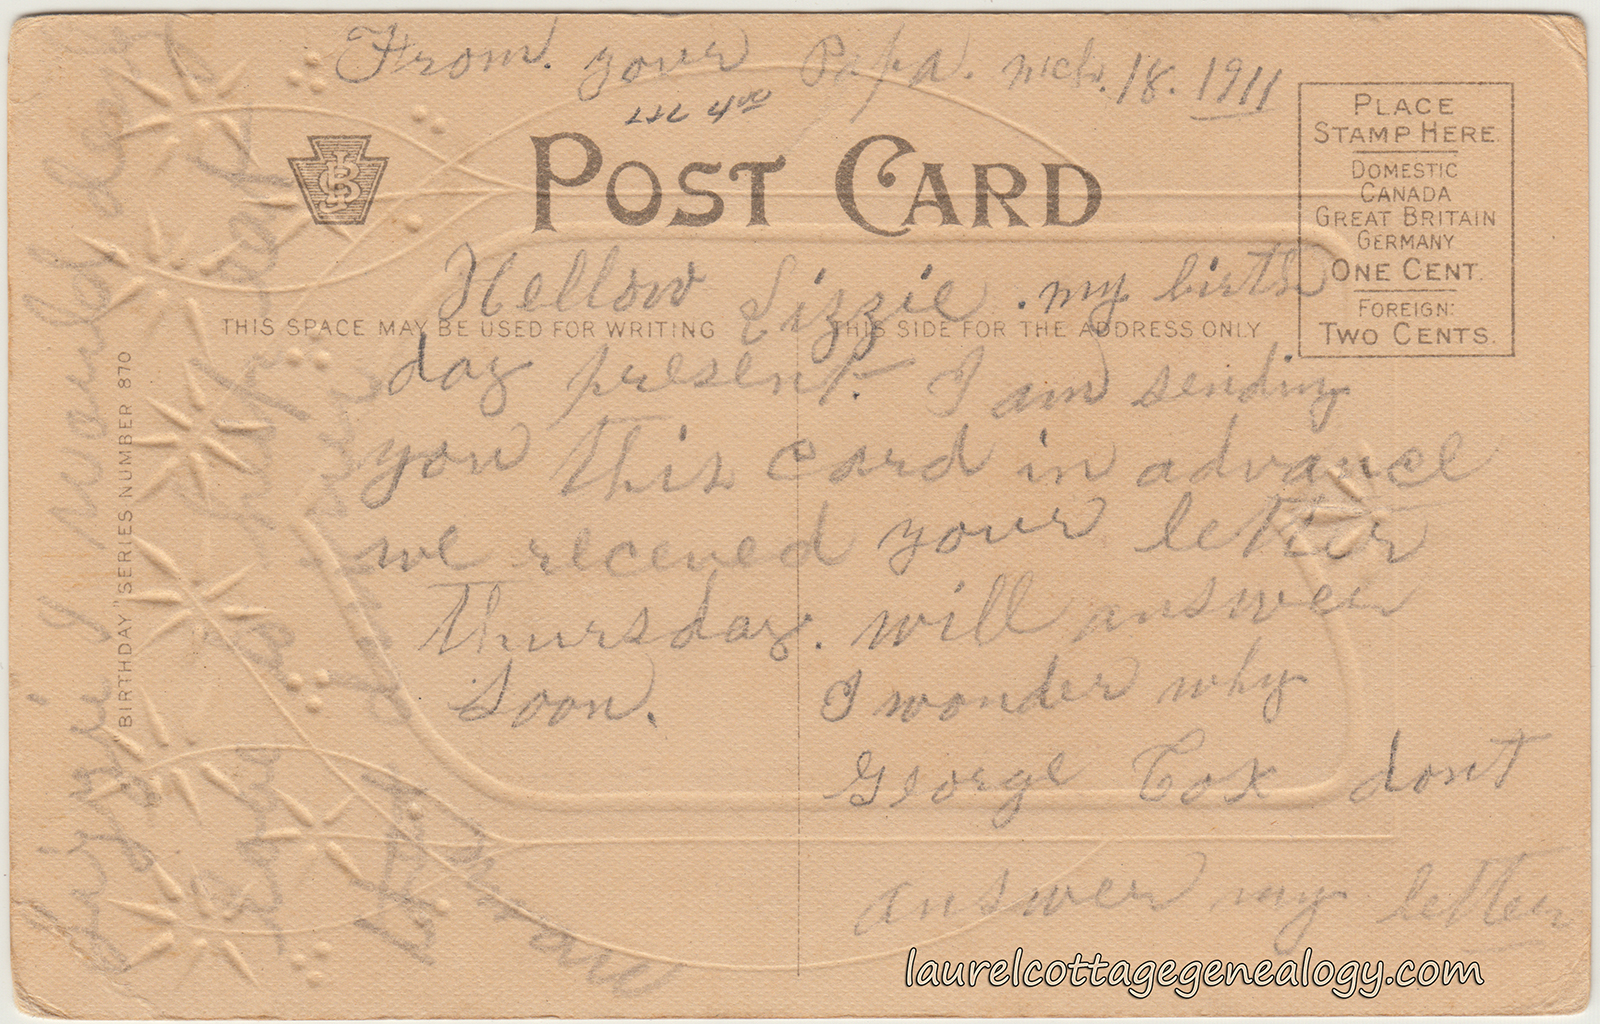 From your Papa. Mch. 18. 1911
POST CARD
PLACE
STAMP HERE.
DOMESTIC
CANADA
GREAT BRITAIN
GERMANY
ONE CENT.
FOREIGN:
TWO CENTS.
THIS SPACE MAY BE USED FOR WRITING
THIS SIDE FOR THE ADDRESS ONLY
Hellow Lizzie . my birth
day present. I am sending
you this card in advance
we receved your letter
thursday. will answer
soon. I wonder why
George Cox dont
answer my letter
Lizzie I would
BIRTHDAY "SERIES NUMBER 870
laurelcottagegenealogy.com